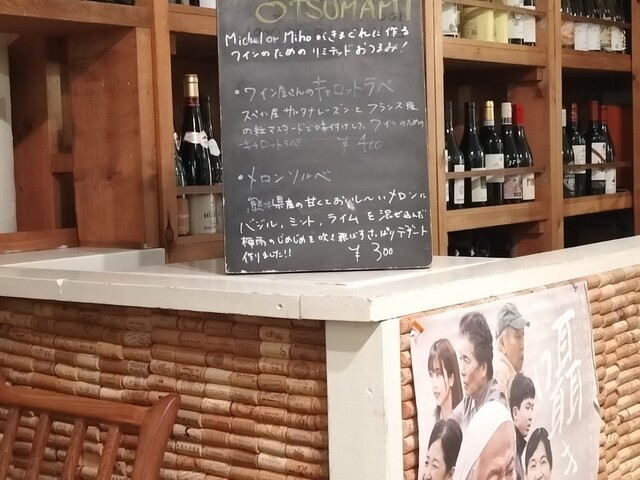 OTSUMAMI
Michel or Mihoがきまぐれに作る
ワインのためのリミテッドおつまみ!
・ワイン屋さんのキャロットラペ
スペイン産サルタナレーズンとフランス産
の粒マスタードで味付けしたワインのための
キャロットラペ ¥400
・メロンソルベ
熊本県産の甘くておいし〜いメロンに
バジル,ミント,ライムを混ぜ込んだ
梅雨のじめじめを吹き飛ばすさっぱりデザート
作りました!! ¥300
囁き